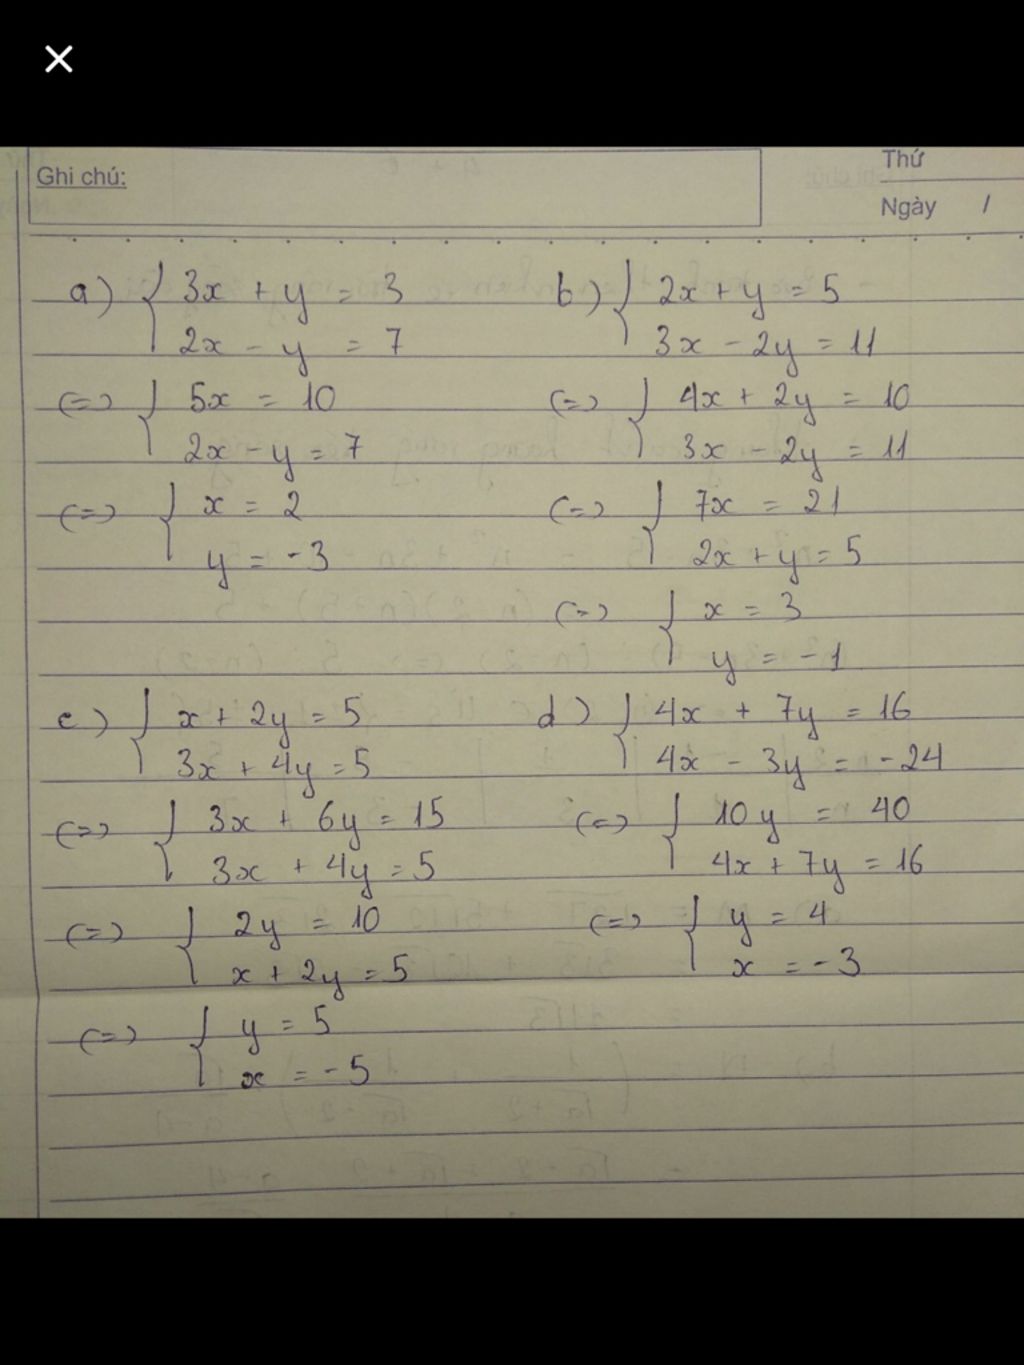 Ghi chú:
Thứ
Ngày /
a) { 3x + y = 3
2x - y = 7
(=) { 5x = 10
2x - y = 7
(=) { x = 2
y = -3
b) { 2x + y = 5
3x - 2y = 11
(=) { 4x + 2y = 10
3x - 2y = 11
(=) { 7x = 21
2x + y = 5
(=) { x = 3
y = -1
c) { x + 2y = 5
3x + 4y = 5
(=) { 3x + 6y = 15
3x + 4y = 5
(=) { 2y = 10
x + 2y = 5
(=) { y = 5
x = -5
d) { 4x + 7y = 16
4x - 3y = -24
(=) { 10y = 40
4x + 7y = 16
(=) { y = 4
x = -3